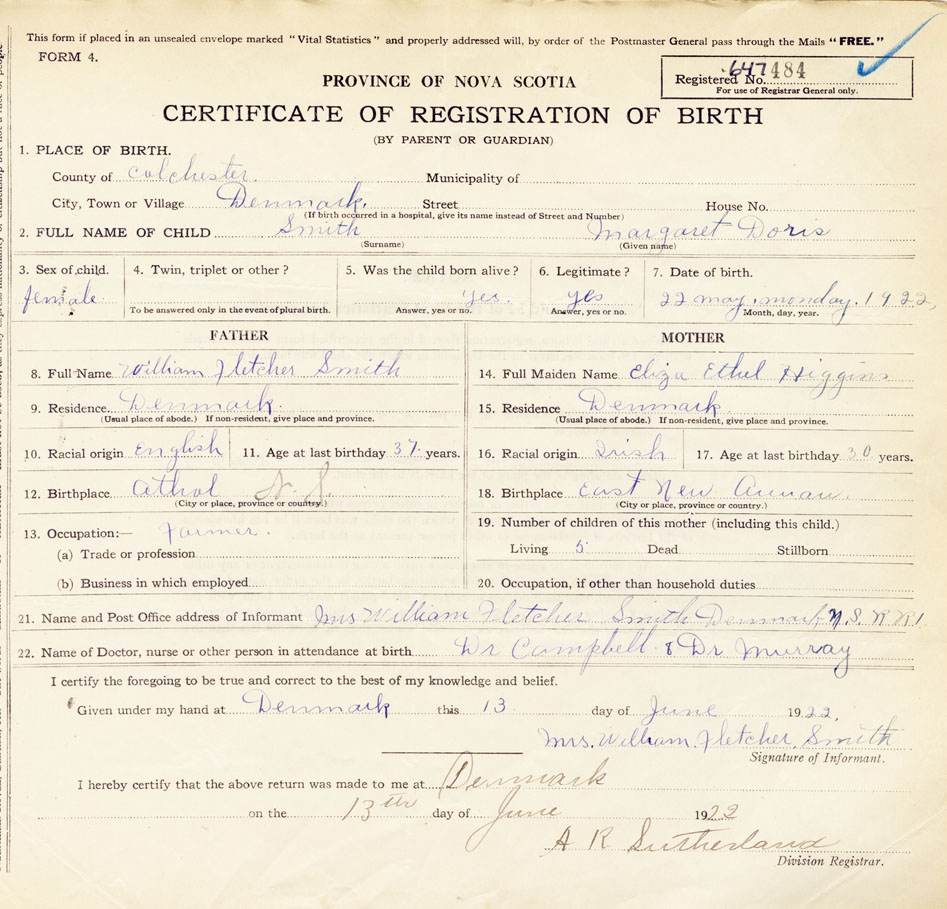 This form if placed in an unsealed envelope marked "Vital Statistics" and properly addressed will, by order of the Postmaster General pass through the Mails "FREE."
FORM 4.
PROVINCE OF NOVA SCOTIA
Registered No. 647 484
For use of Registrar General only.
CERTIFICATE OF REGISTRATION OF BIRTH
(BY PARENT OR GUARDIAN)
1. PLACE OF BIRTH.
County of Colchester. Municipality of
City, Town or Village Denmark. Street House No.
(If birth occurred in a hospital, give its name instead of Street and Number)
2. FULL NAME OF CHILD Smith Margaret Doris
(Surname) (Given name)
3. Sex of child. 4. Twin, triplet or other? 5. Was the child born alive? 6. Legitimate? 7. Date of birth.
female yes. yes 22 may. monday. 1922,
To be answered only in the event of plural birth. Answer, yes or no. Answer, yes or no. Month, day, year.
FATHER MOTHER
8. Full Name William Fletcher Smith 14. Full Maiden Name Eliza Ethel Higgins
9. Residence. Denmark. 15. Residence Denmark.
(Usual place of abode.) If non-resident, give place and province. (Usual place of abode.) If non-resident, give place and province.
10. Racial origin English 11. Age at last birthday 37 years. 16. Racial origin Irish 17. Age at last birthday 30 years.
12. Birthplace Athol N.S. 18. Birthplace East New Annan.
(City or place, province or country.) (City or place, province or country.)
13. Occupation:— Farmer. 19. Number of children of this mother (including this child.)
(a) Trade or profession Living 5 Dead Stillborn
(b) Business in which employed 20. Occupation, if other than household duties
21. Name and Post Office address of Informant Mrs William Fletcher Smith Denmark N.S. R R1.
22. Name of Doctor, nurse or other person in attendance at birth Dr Campbell & Dr Murray
I certify the foregoing to be true and correct to the best of my knowledge and belief.
Given under my hand at Denmark this 13 day of June 1922,
Mrs. William. Fletcher. Smith
Signature of Informant.
I hereby certify that the above return was made to me at Denmark
on the 13th day of June 1922
A R Sutherland
Division Registrar.